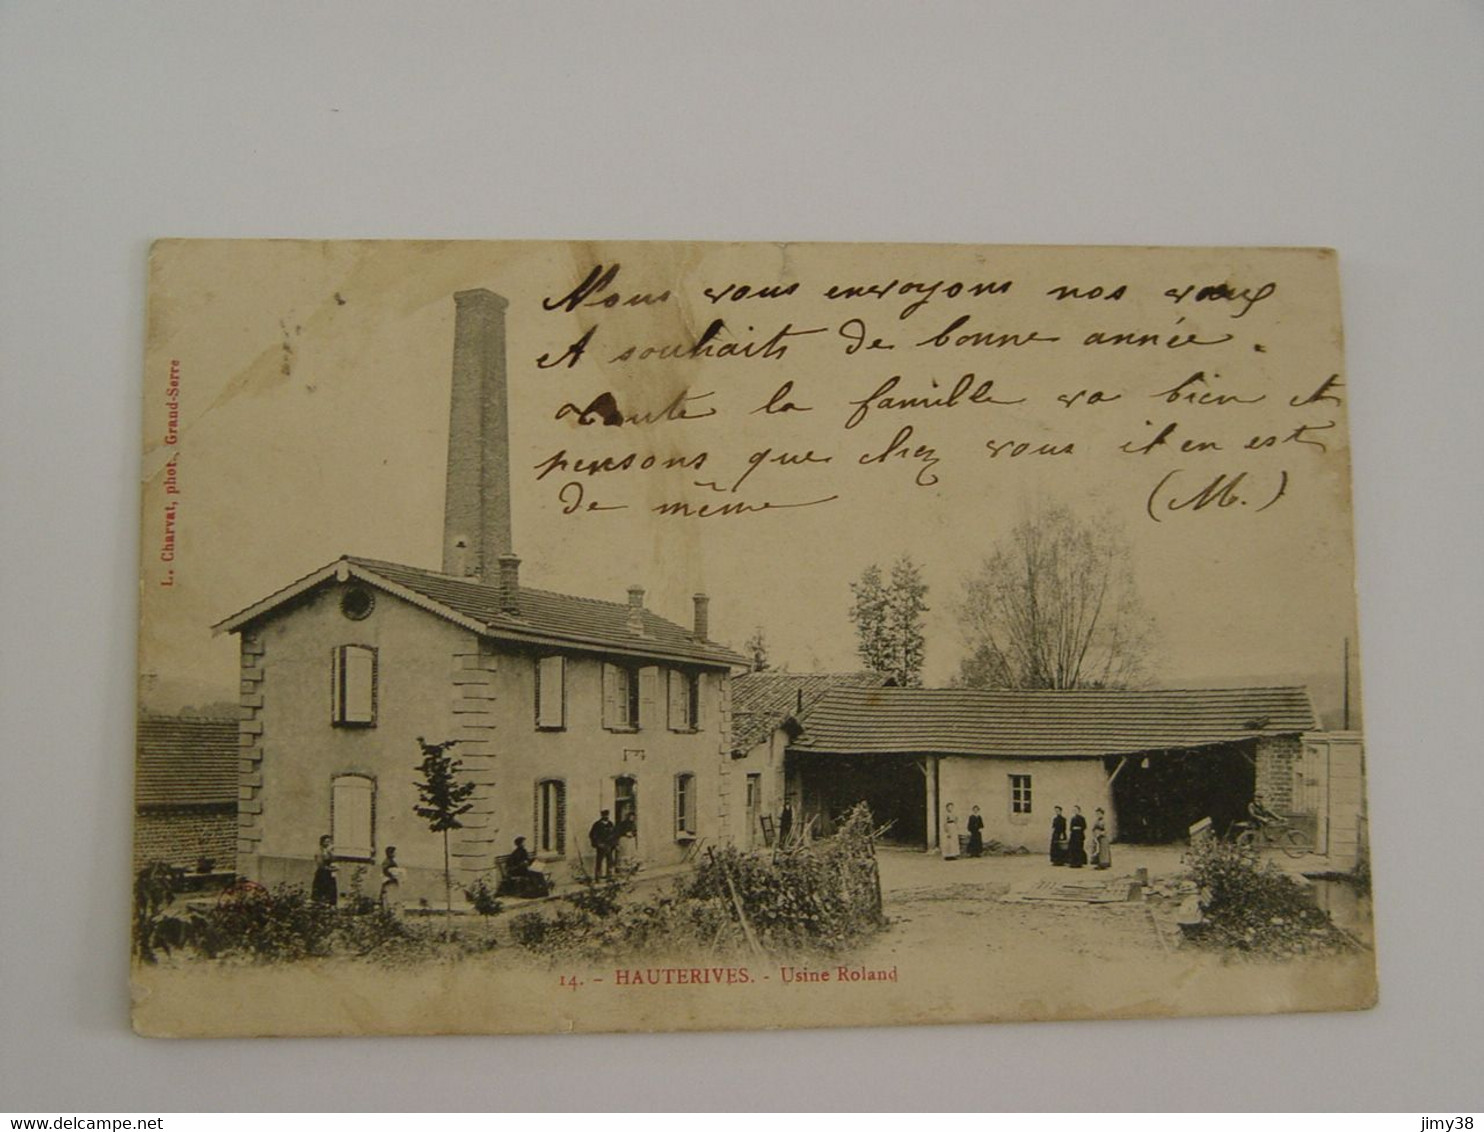 Nous vous envoyons nos vœux
et souhaits de bonne année.
toute la famille va bien et
pensons que chez vous il en est
de même (M.)
L. Charvat, phot., Grand-Serre
14. - HAUTERIVES. - Usine Roland
www.delcampe.net
jimy38